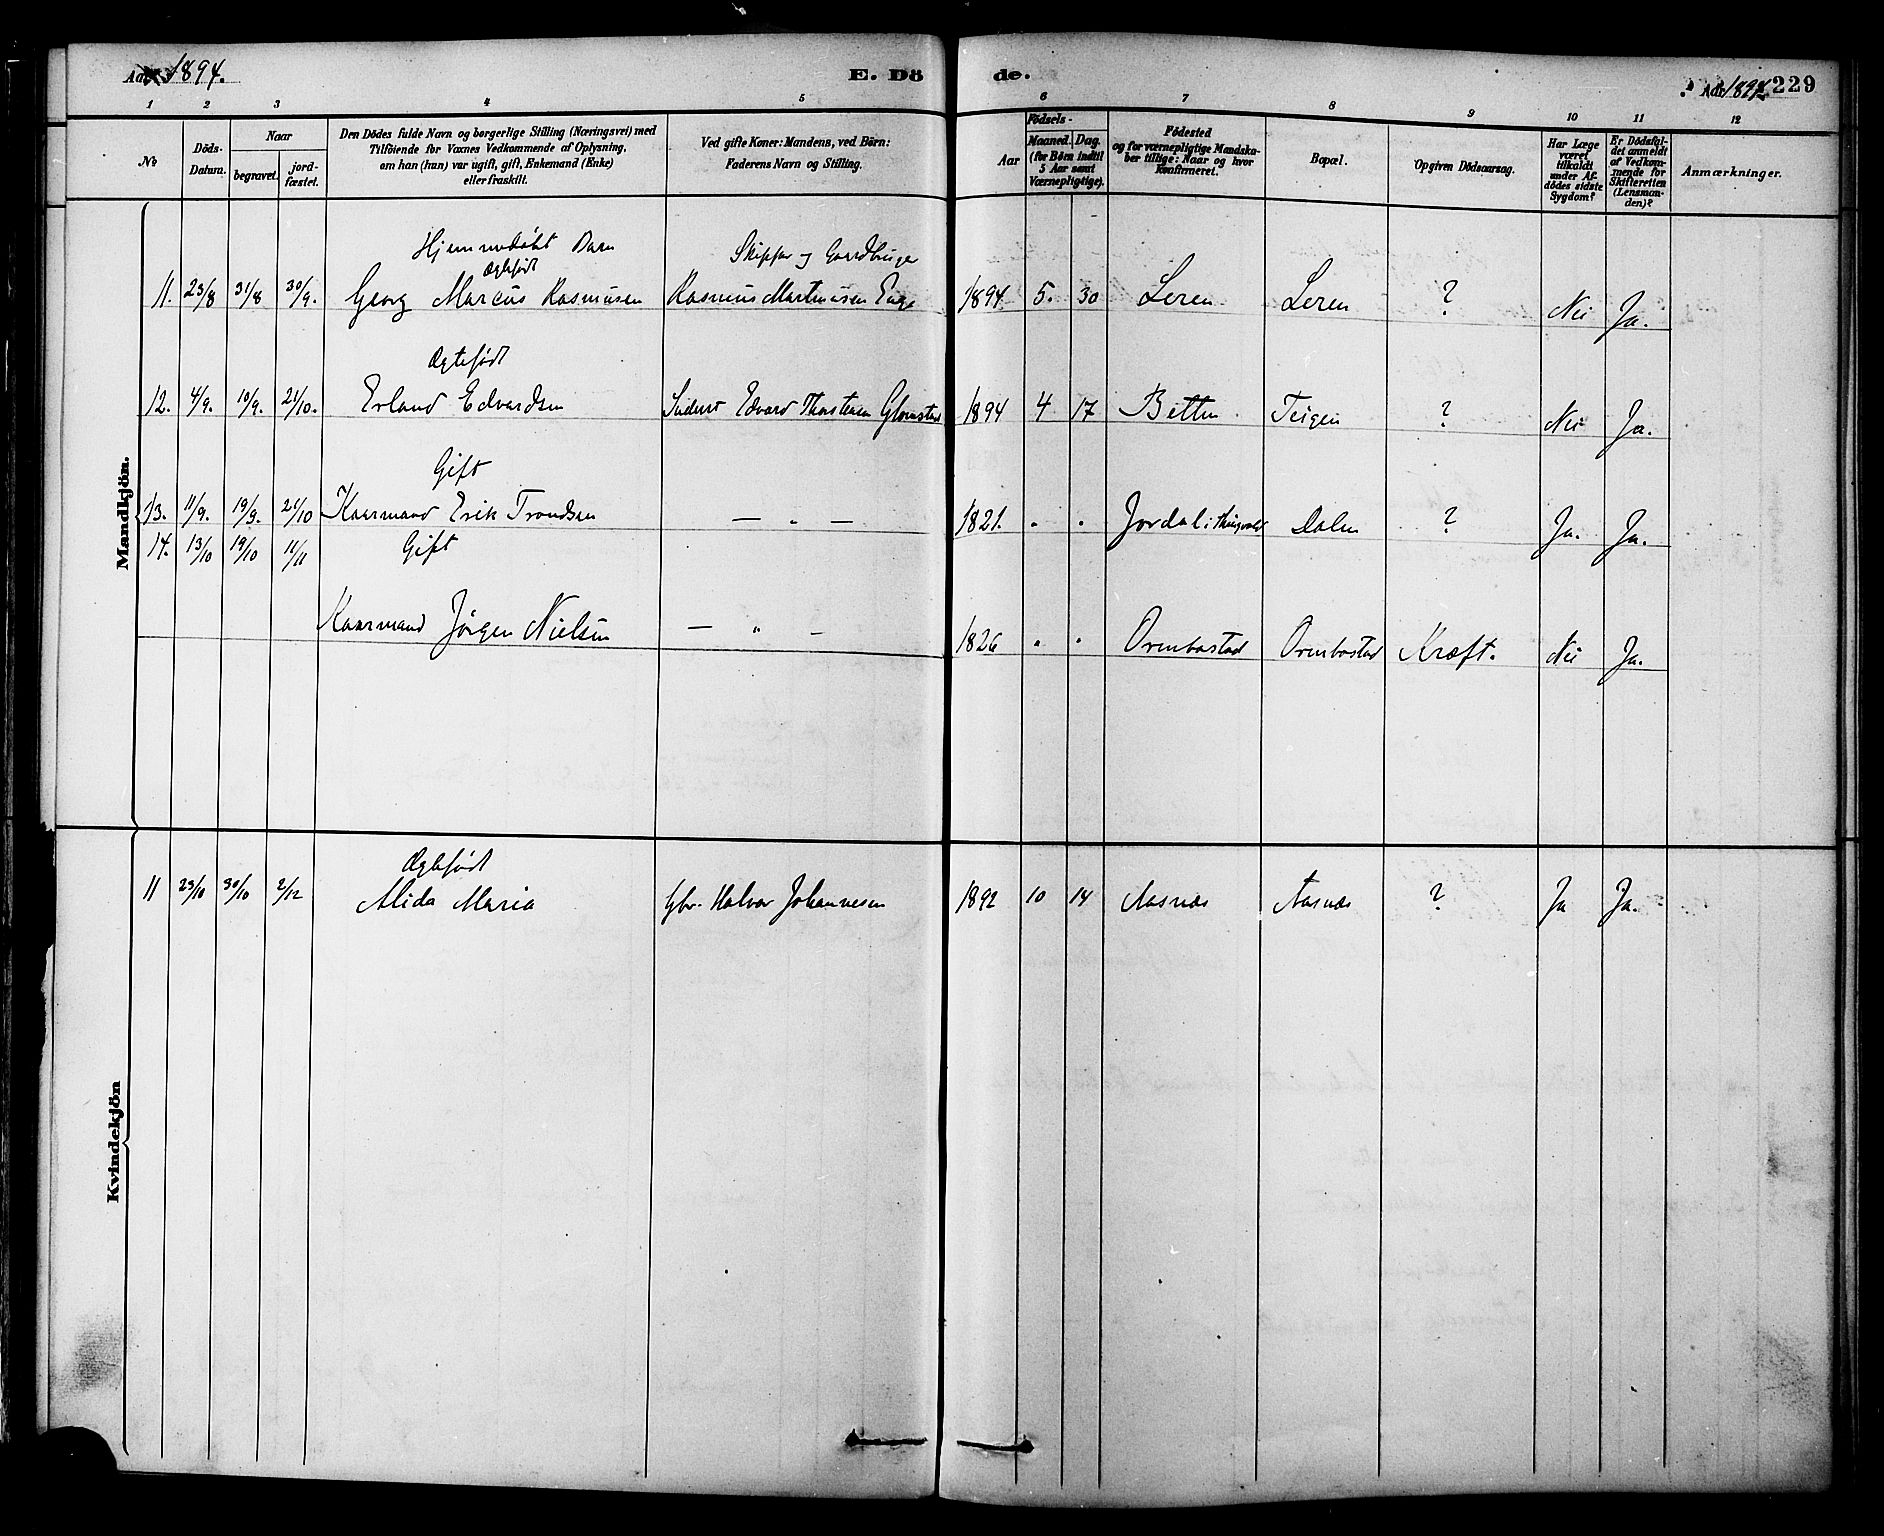 Aar 1894.
E. Dö
de.
Aar 1894
229
1 2 3 4 5 6 7 8 9 10 11 12
No
Döds-Datum.
Naar
begravet.
jord-fæstet.
Den Dödes fulde Navn og borgerlige Stilling (Næringsvei) med
Tilföiende for Voxnes Vedkommende af Oplysning,
om han (hun) var ugift, gift, Enkemand (Enke)
eller fraskilt.
Ved gifte Koner: Mandens, ved Börn:
Faderens Navn og Stilling.
Födsels-
Aar
Maaned. Dag.
(for Börn indtil
5 Aar samt
Værnepligtige).
Födested
og for værnepligtige Mandska-
ber tillige: Naar og hvor
konfirmeret.
Bopæl.
Opgiven Dödsaarsag.
Har Læge
været
tilkaldt
under Af-
dödes sidste
Sygdom?
Er Dödsfal-
det anmeldt
af Vedkom-
mende for
Skifteretten
(Lensman-
den)?
Anmærkninger.
Mandkjön.
Hjemmedøbt Barn
Ægtefødt
Skipper og Gaardbruger
11. 23/8 31/8 30/9. Georg Marcus Rasmusen Rasmus Martinusen Enge 1894 5. 30 Leren Leren ? Nei Ja.
Ægtefødt
12. 4/9. 10/9. 21/10. Erland Edvardsen Edvard Thorstensen Glomstad 1894 4 17 Betten Teigen ? Nei Ja.
Gift
13. 11/9. 19/9. 21/10 Kaarmand Erik Trondsen — " — 1821. " " Jordal i Thingvold Dalen ? Ja. Ja.
14. 13/10 19/10 11/11 Gift
Kaarmand Jörgen Nielsen — " — 1826 " " Ormbostad Ormbostad Kræft. Nei Ja.
Kvindekjön
Ægtefødt
11 23/10 30/10 2/12 Alida Maria Gbr. Halvor Johannesen 1892 10 14 Aasnæs Aasnæs ? Ja Ja.